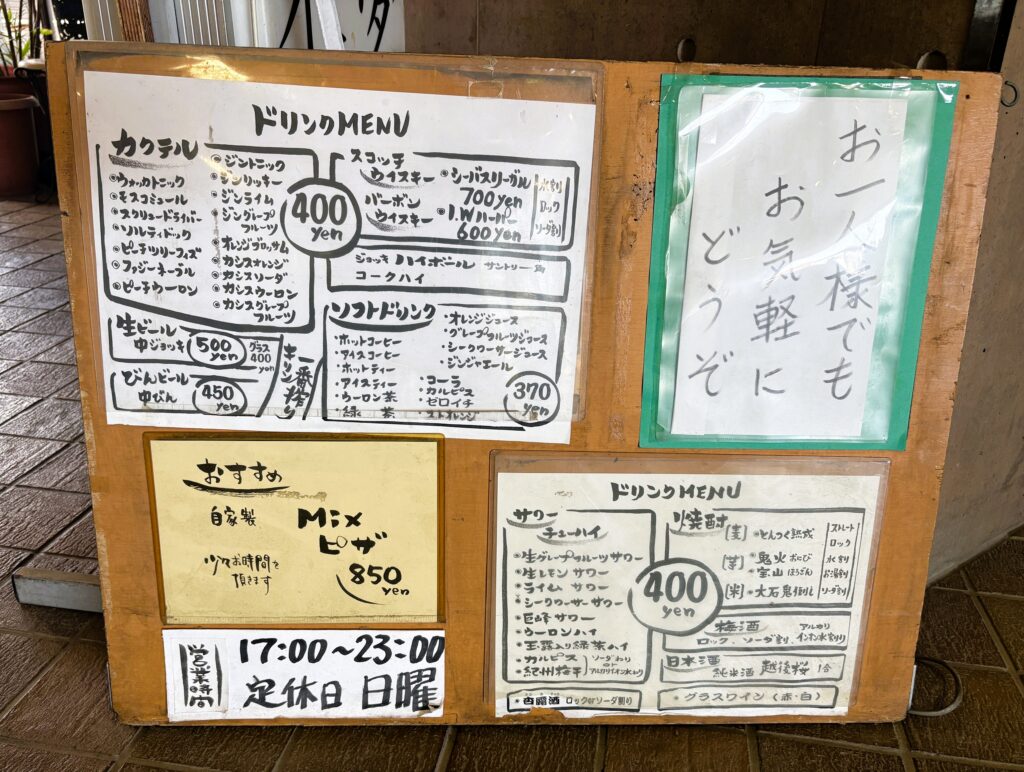 ドリンクMENU
カクテル
・ウォッカトニック
・モスコミュール
・スクリュードライバー
・ソルティドック
・ピーチツリーフィズ
・ファジーネーブル
・ピーチウーロン
・ジントニック
・ジンリッキー
・ジンライム
・ジングレープフルーツ
・オレンジブロッサム
・カシスオレンジ
・カシスソーダ
・カシスウーロン
・カシスグレープフルーツ
400 yen
スコッチ
ウイスキー
バーボン
ウイスキー
・シーバスリーガル
700yen
・I.Wハーパー
600yen
水割り
ロック
ソーダ割り
ジョッキ ハイボール サントリー角
コークハイ
生ビール
中ジョッキ
500 yen
グラス
400
yen
びんビール
中びん
450 yen
キリン一番搾り
ソフトドリンク
・ホットコーヒー
・アイスコーヒー
・ホットティー
・アイスティー
・ウーロン茶
・緑茶
・オレンジジュース
・グレープフルーツジュース
・シークワーサージュース
・ジンジャエール
・コーラ
・カルピス
・ゼロイチ
370 yen
お一人様でも
お気軽に
どうぞ
おすすめ
自家製
Mix
ピザ
少々お時間を
頂きます
850
yen
営業時間
17:00〜23:00
定休日 日曜
ドリンクMENU
サワー
チューハイ
・生グレープフルーツサワー
・生レモンサワー
・ライムサワー
・シークワーサーサワー
・巨峰サワー
・ウーロンハイ
・玉露入り緑茶ハイ
・カルピス
・紀州梅干
ソーダわり
アルカリイオン水わり
400
yen
焼酎
[麦]
[芋] ・鬼火 おにび
・宝山 ほうざん
[米] ・大石鬼倒し
ストレート
ロック
水割り
お湯割り
ソーダ割り
梅酒
ロック、ソーダ割り、アルカリイオン水割り
日本酒
純米酒 越後桜 1合
・杏露酒 ロックorソーダ割り
・グラスワイン（赤・白）